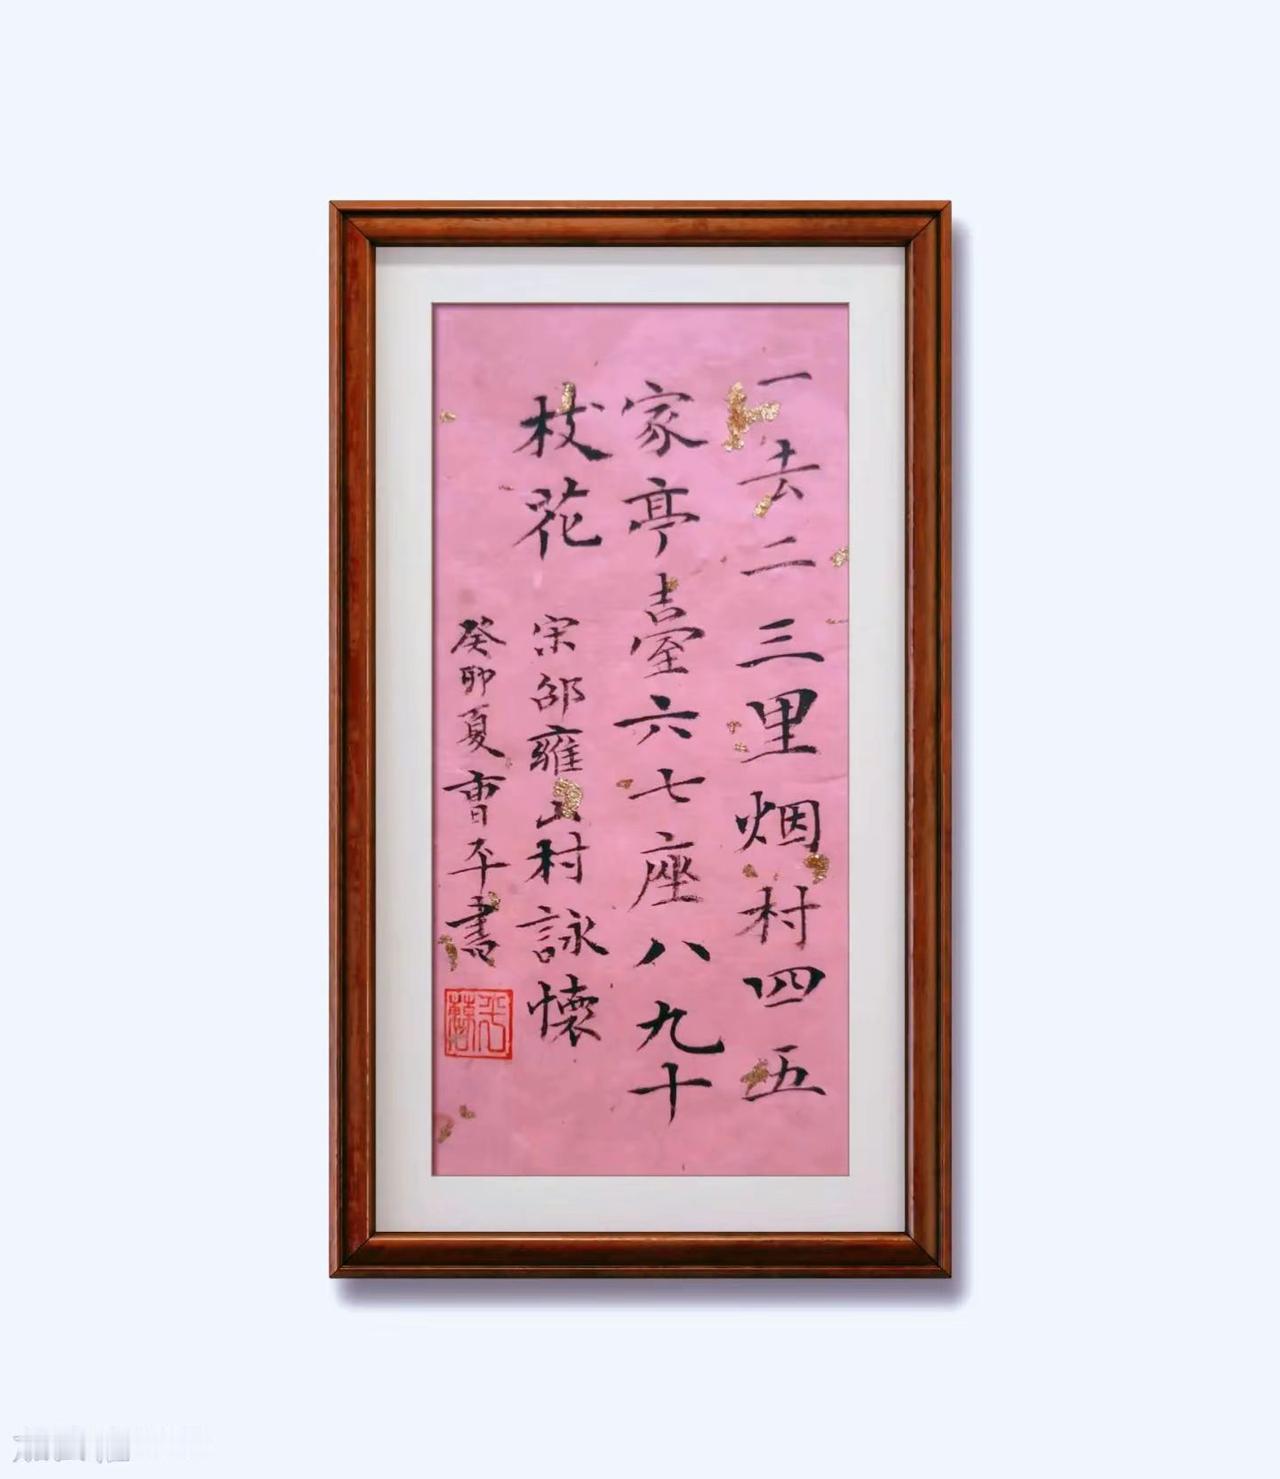 一去二三里烟村四五
家亭臺六七座八九十
枝花
宋邵雍山村詠懷
癸卯夏曹平書